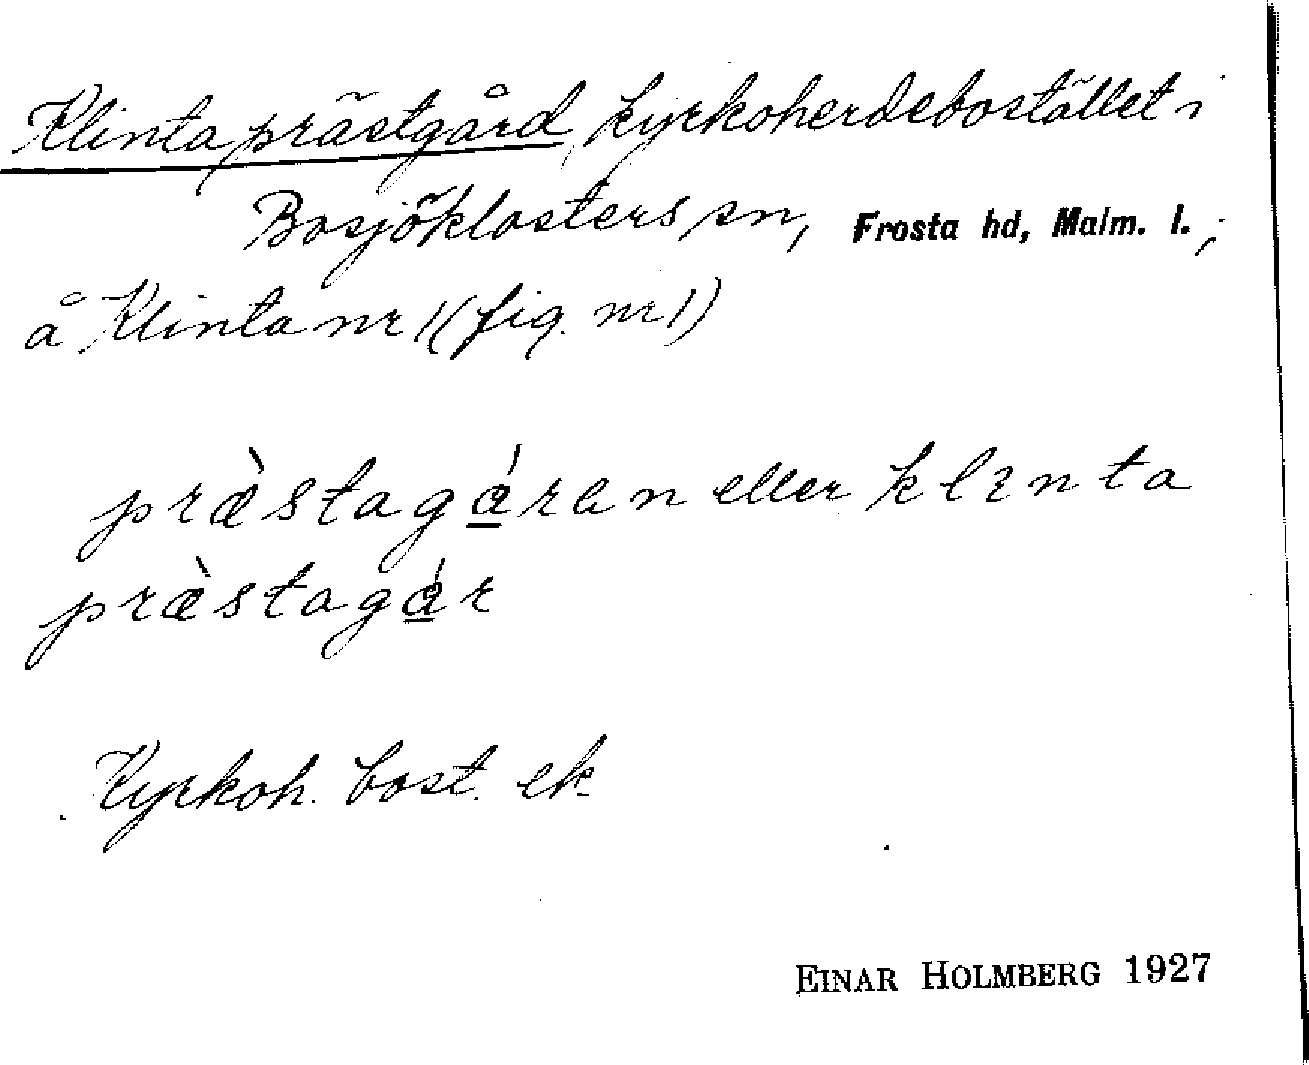 Klinta prästgård, kyrkoherdebostället i
Bosjöklosters sn, Frosta hd, Malm. l.;
å Klinta nr 1 (fig. nr 1)
præ̀stagá̱ren eller klınta
præ̀stagá̱r
Kyrkoh. bost. ek.
EINAR HOLMBERG 1927